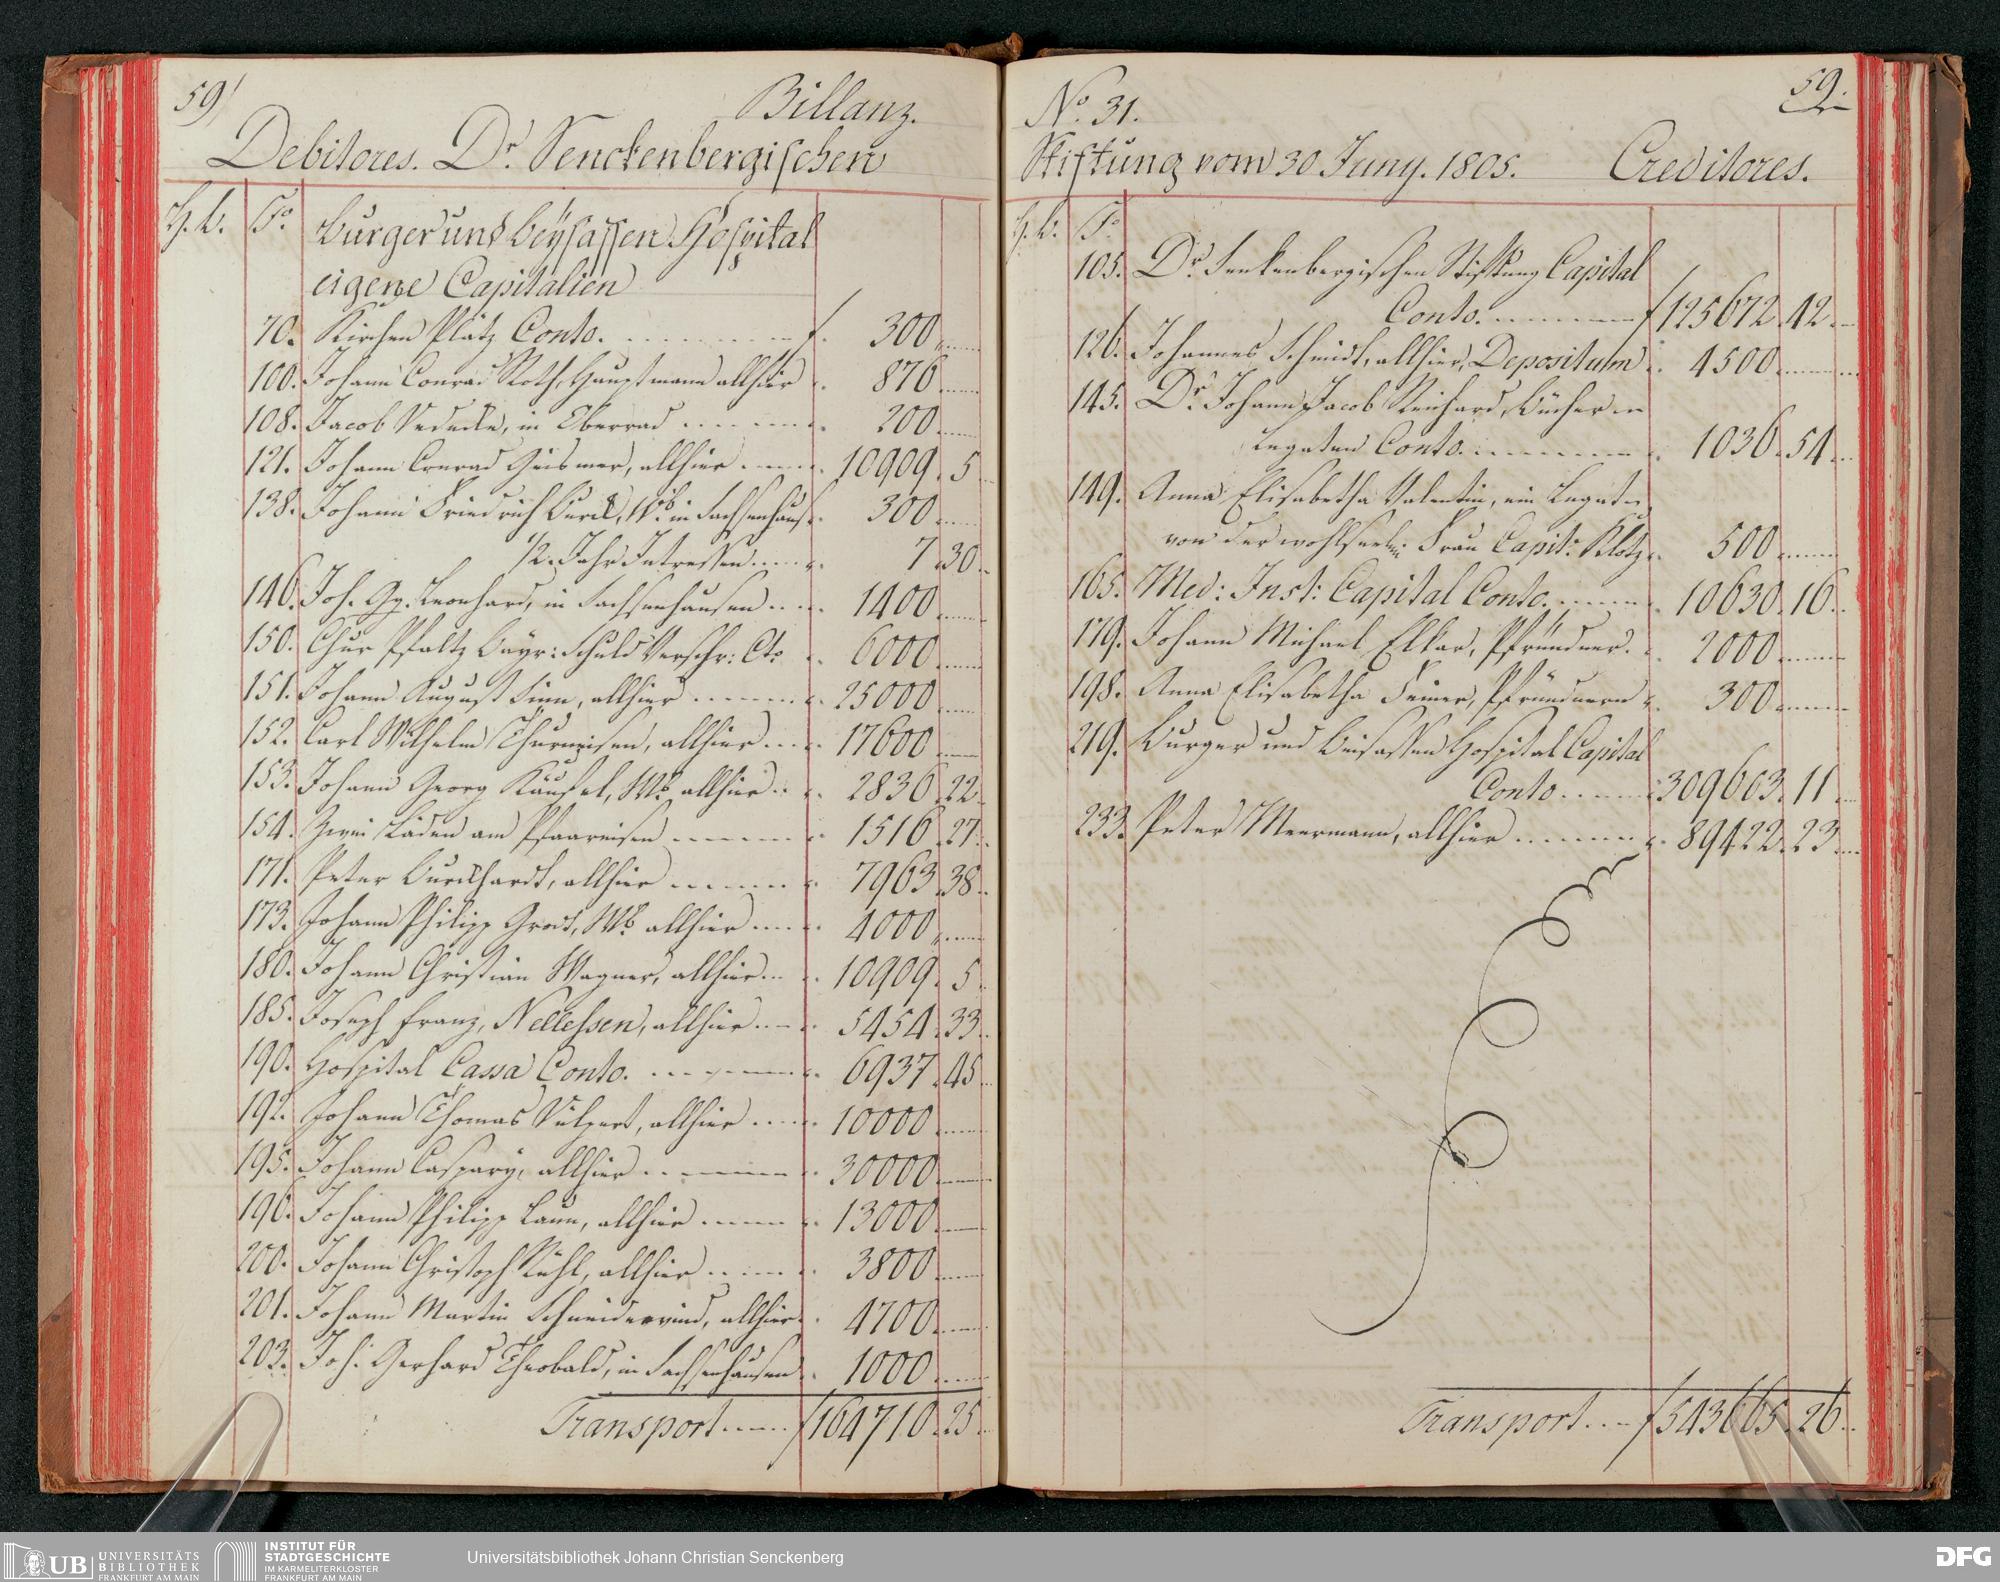 59
Billanz.
Debitores. Dr. Senckenbergischen
H. b. Fo. burger und beysassen Hospital
eigene Capitalien
70. Kirchen Platz Conto. f. 300
100. Johann Conrad Roth, Hauptmann allhier 876
108. Jacob in Oberrad 200
121. Johann Conrad Geismer, allhier 10909. 5
138. Johann Friedrich Burck, Wb. in Sachsenhaus. 300
1/2. Jahr Intressen 7. 30
146. Joh. Gg. Leonhard, in Sachsenhausen 1400
150. Chur Pfaltz Bayr: Schuld Verschr: Cto 6000
151. Johann August allhier 25000
152. Carl Wilhelm Thurneisen, allhier 17600
153. Johann Georg Käussel, Wb. allhier 2836. 22
154. Zwei Läden am Pfaareisen 1516. 27
171. Peter Burckhardt, allhier 7963. 38
173. Johann Philipp Wb. allhier 4000
180. Johann Christian Wagner, allhier 10909. 5
185. Joseph Franz, Nellessen, allhier 5454. 33
190. Hospital Cassa Conto. 6937. 45
192. Johann Thomas allhier 10000
195. Johann Caspary, allhier 30000
196. Johann Philipp Laun, allhier 13000
200. Johann Christoph Rühl, allhier 3800
201. Johann Martin Schneidewind, allhier 4700
203. Joh: Gerhard Theobald, in Sachsenhausen 1000
Transport f 164710. 25
59.
No. 31.
Stiftung vom 30 Juny. 1805. Creditores.
H. b. Fo
105. Dr. Senkenbergischen Stiftung Capital
Conto. f 125672. 42
126. Johannes Schmidt, allhier, Depositum 4500
145. Dr. Johann Jacob Reichard, Bücher
Legaten Conto. 1036. 54
149. Anna Elisabetha Valentin, ein Legat
von der wohlseeln: Frau Capit: Klotz 500
165. Med: Inst: Capital Conto. 10630. 16
179. Johann Michael Elkar, Pfründner. 2000
198. Anna Elisabetha Pfründnern 300
219. Burger und Beisassen Hospital Capital
Conto 309603. 11
233. Peter Meermann, allhier 89422. 23
Transport f 543665. 26
UB UNIVERSITÄTS
BIBLIOTHEK
FRANKFURT AM MAIN
INSTITUT FÜR
STADTGESCHICHTE
IM KARMELITERKLOSTER
FRANKFURT AM MAIN
Universitätsbibliothek Johann Christian Senckenberg
DFG